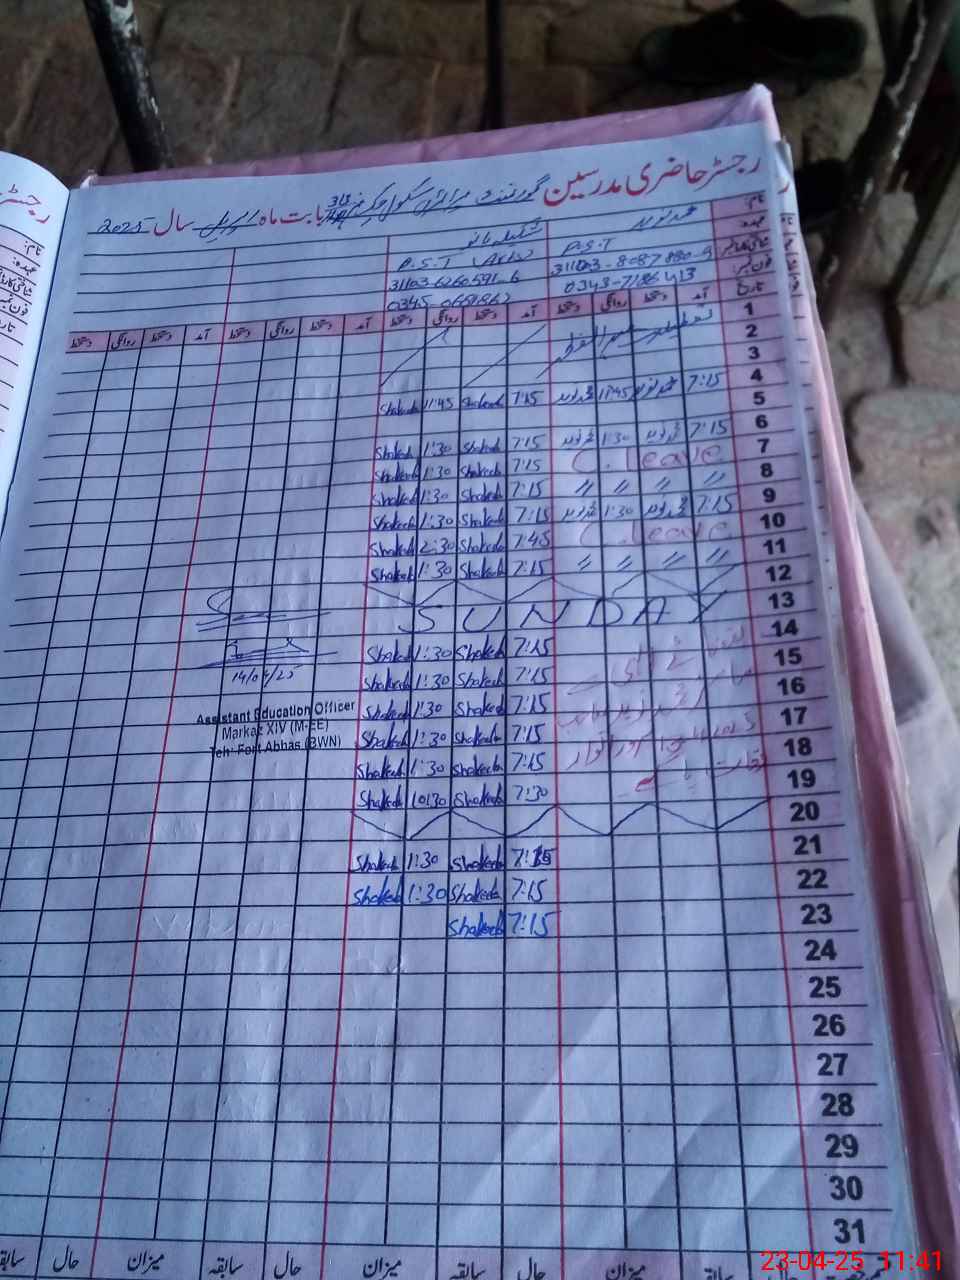 رجسٹر حاضری مدرسین گورنمنٹ پرائمری سکول بابت ماہ اپریل سال 2025
نام:
عہدہ:
شناختی کارڈ نمبر
فون نمبر:
تاریخ
محمد نوید
P.S.T
31103-8087880-9
0343-7186413
شکیلہ بانو
P.S.T (Arts)
31103-6260591-6
0345-0661862
آمد دستخط روانگی دستخط آمد دستخط روانگی دستخط آمد دستخط روانگی دستخط آمد دستخط روانگی دستخط
1
2
3
4
5 7:15 محمد نوید 11:45 محمد نوید 7:15 Shakeela 11:45 Shakeela
6
7 7:15 محمد نوید 1:30 محمد نوید 7:15 Shakeela 1:30 Shakeela
8 C. leave 7:15 Shakeela 1:30 Shakeela
9 〃 〃 〃 〃 7:15 Shakeela 1:30 Shakeela
10 7:15 محمد نوید 1:30 محمد نوید 7:15 Shakeela 1:30 Shakeela
11 C. leave 7:45 Shakeela 2:30 Shakeela
12 〃 〃 〃 〃 7:15 Shakeela 1:30 Shakeela
13 SUNDAY
14 7:15 Shakeela 1:30 Shakeela
15 7:15 Shakeela 1:30 Shakeela
16 7:15 Shakeela 1:30 Shakeela
17 7:15 Shakeela 1:30 Shakeela
18 7:15 Shakeela 1:30 Shakeela
19 7:30 Shakeela 10:30 Shakeela
20
21 7:15 Shakeela 1:30 Shakeela
22 7:15 Shakeela 1:30 Shakeela
23 7:15 Shakeela
24
25
26
27
28
29
30
31
14/04/25
Assistant Education Officer
Markaz XIV (M-EE)
Teh: Fort Abbas (BWN)
حال سابقہ میزان حال سابقہ میزان حال سابقہ میزان حال سابقہ
23-04-25 11:41